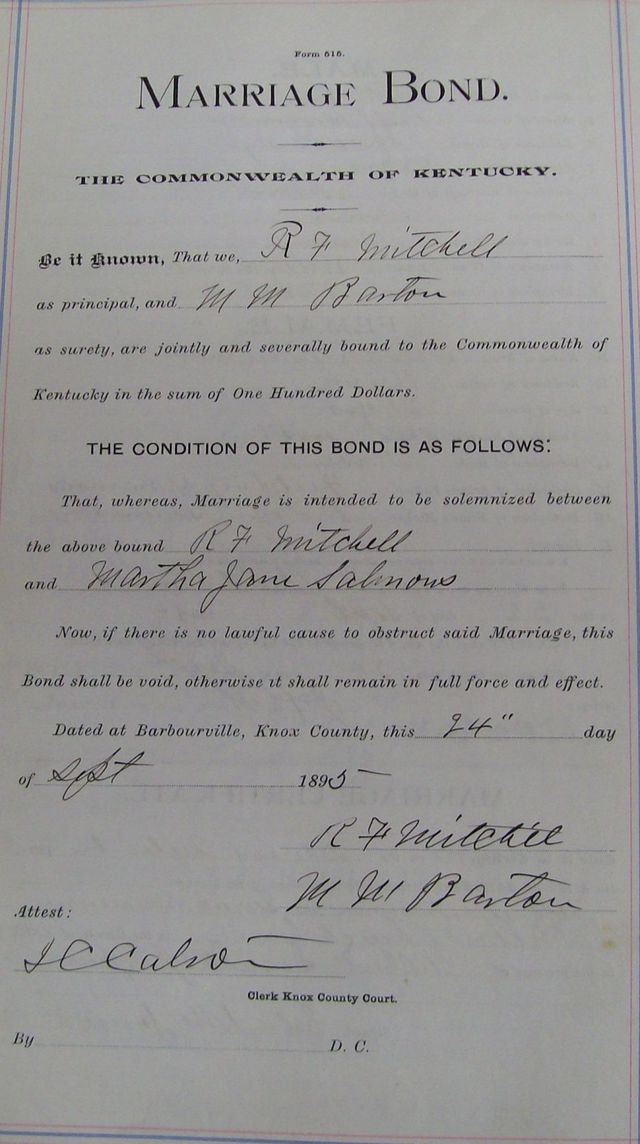 Form 515.
MARRIAGE BOND.
THE COMMONWEALTH OF KENTUCKY.
Be it Known, That we, R F Mitchell
as principal, and M M Barton
as surety, are jointly and severally bound to the Commonwealth of
Kentucky in the sum of One Hundred Dollars.
THE CONDITION OF THIS BOND IS AS FOLLOWS:
That, whereas, Marriage is intended to be solemnized between
the above bound R F Mitchell
and Martha Jane Salmons
Now, if there is no lawful cause to obstruct said Marriage, this
Bond shall be void, otherwise it shall remain in full force and effect.
Dated at Barbourville, Knox County, this 24" day
of Sept 1895
R F Mitchell
M M Barton
Attest:
Clerk Knox County Court.
By D. C.